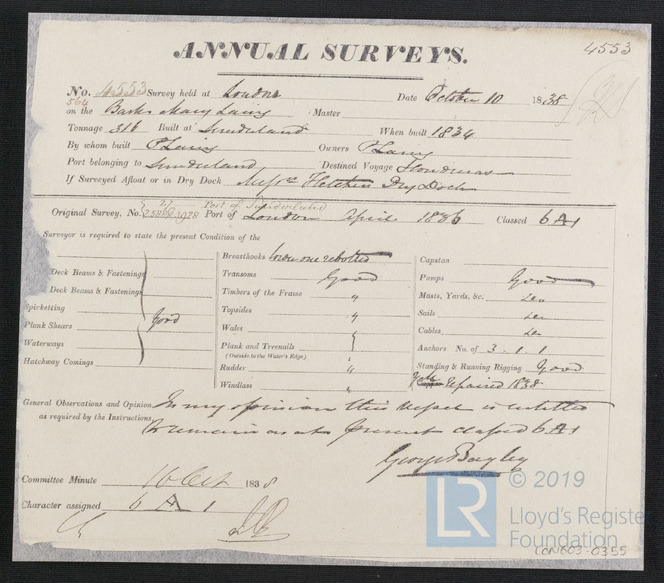 4553
ANNUAL SURVEYS.
No. 4553 Survey held at London Date October 10 1838
564
on the Bark Mary Laing Master
Tonnage 316 Built at Sunderland When built 1834
By whom built P Laing Owners P Laing
Port belonging to Sunderland Destined Voyage Honduras
If Surveyed Afloat or in Dry Dock Messrs Fletchers Dry Dock
Port of Sunderland
Original Survey, No. Port of London April 1836 Classed 6 A 1
Surveyor is required to state the present Condition of the
Deck Beams & Fastenings
Deck Beams & Fastenings
Spirketting
Plank Shears Good
Waterways
Hatchway Comings
Breasthooks lower one rebolted
Transoms Good
Timbers of the Frame "
Topsides "
Wales "
Plank and Treenails "
(Outside to the Water's Edge)
Rudder "
Windlass "
Capstan
Pumps Good
Masts, Yards, &c. Do
Sails Do
Cables Do
Anchors No. of 3 . 1 . 1
Standing & Running Rigging Good
Repaired 1838
General Observations and Opinion In my opinion this vessel is entitled
as required by the Instructions to remain as at present classed 6 A 1
George Bayley
Committee Minute 16 Oct 1838
Character assigned 6 A 1
LR
© 2019
Lloyd's Register
Foundation
LON603-0355